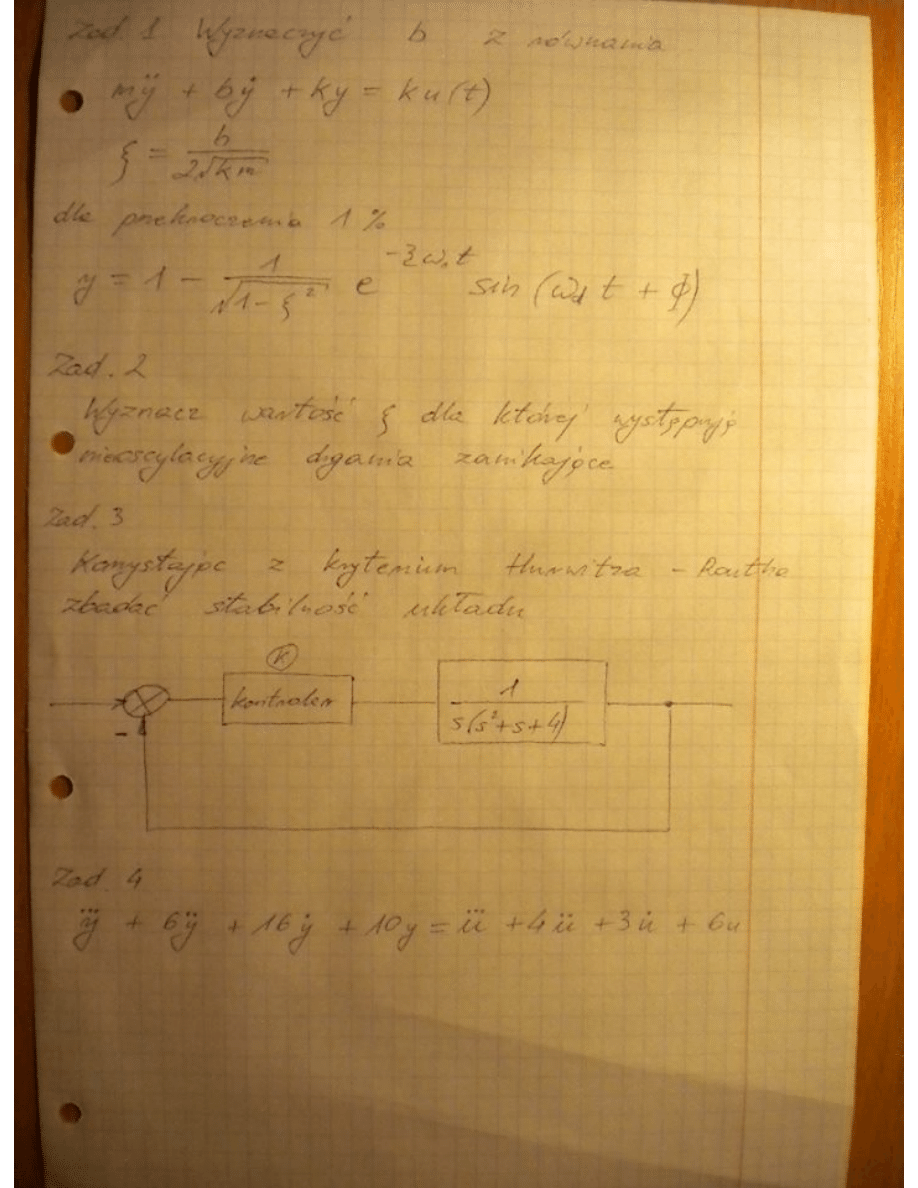 Zad. 1 Wyznaczyć b z równania
mÿ + bẏ + ky = ku(t)
ξ = b / (2√km)
dla przekroczenia 1 %
y = 1 - 1/√(1-ξ²) e^(-ξω₀t) sin (ω_d t + ϕ)
Zad. 2
Wyznacz wartość ξ dla której występują
nieoscylacyjne drgania zanikające
Zad. 3
Korzystając z kryterium Hurwitza - Routha
zbadać stabilność układu
K
kontroler
1 / s(s²+s+4)
-
Zad. 4
y⃛ + 6ÿ + 16ẏ + 10y = u⃛ + 4ü + 3u̇ + 6u